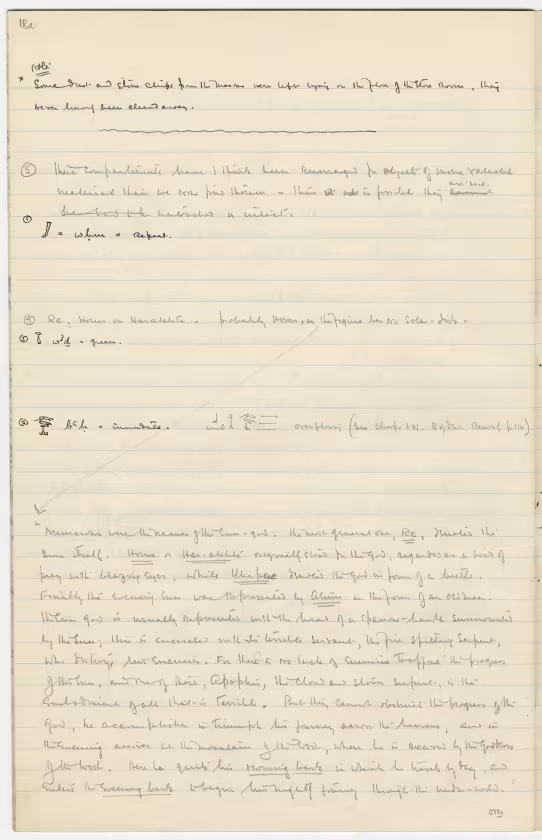 18a
Note:
* Some dust and stone chips from the masons were left lying on the floor of the Store Room, they
never having been cleared away.
⑤ These compartments have I think been rummaged for object of more valuable
material than we now find therein - Thus it is possible they are not
or intact.
① = whm = repeat.
④ Re, Horus or Harakhte. probably Horus, as the figure has no Solar-disk.
② w3d = green.
③ bꜥḥ = inundate. overflowing (See Chap.
"Numerous were the names of the Sun-god. The most general one, Re, denotes the
Sun itself. Horus or Har-akhte originally stood for the God, regarded as a bird of
prey with blazing eyes, while Khepre denotes the God in form of a beetle.
Finally the evening Sun was represented by Atum in the form of an old man.
The Sun God is usually represented with the head of a sparrow-hawk surmounted
by the Sun; this is encircled with its terrible servant, the fire spitting serpent,
who destroys his enemies. For there is no lack of enemies to oppose the progress
of the Sun, and one of those, Apophis, the Cloud and storm serpent, is the
embodiment of all that is terrible. But they cannot obstruct the progress of the
God, he accomplishes in triumph his journey across the heavens, and in
the evening arrives at the mountain of the West, where he is received by the Goddess
of the West. Here he quits his morning bark in which he travels by day, and
enters the evening bark to begin his nightly journey through the under-world."
over